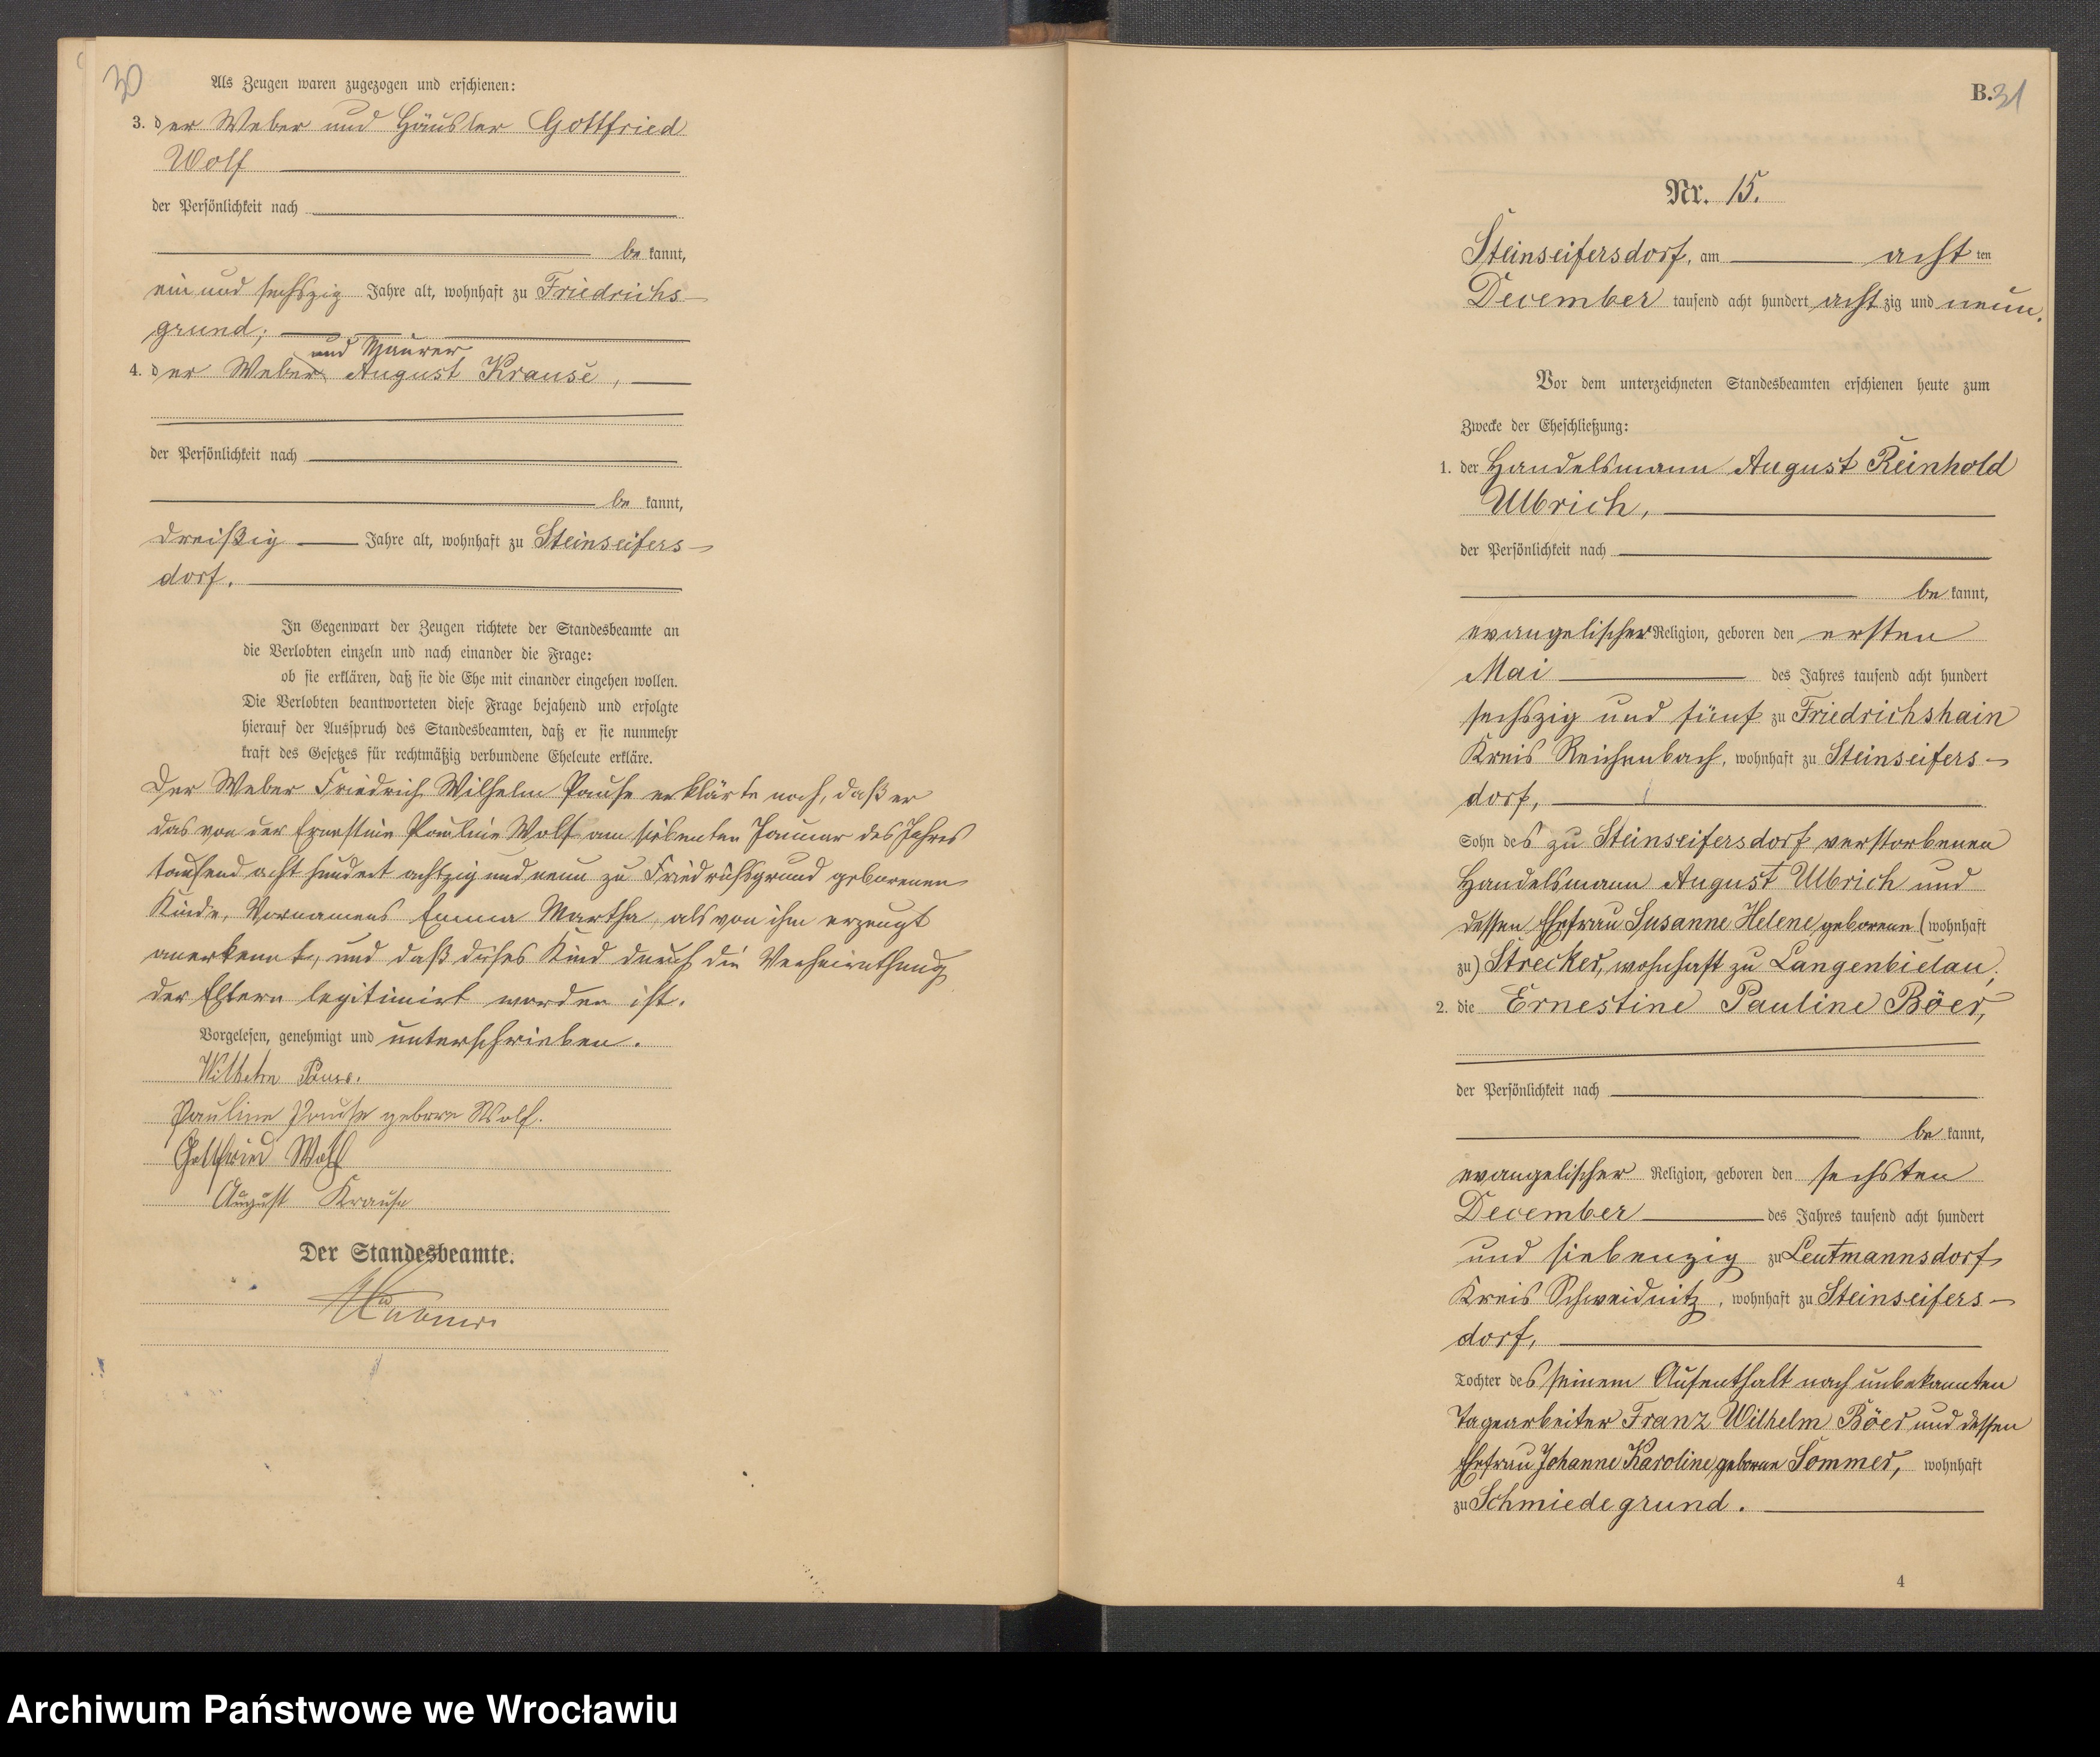 30
Als Zeugen waren zugezogen und erschienen:
3. der Weber und Häusler Gottfried
Wolf
der Persönlichkeit nach
be kannt,
ein und sechszig Jahre alt, wohnhaft zu Friedrichs-
grund;
und Maurer
4. der Weber August Krause,
der Persönlichkeit nach
be kannt,
dreißig Jahre alt, wohnhaft zu Steinseifers-
dorf.
In Gegenwart der Zeugen richtete der Standesbeamte an
die Verlobten einzeln und nach einander die Frage:
ob sie erklären, daß sie die Ehe mit einander eingehen wollen.
Die Verlobten beantworteten diese Frage bejahend und erfolgte
hierauf der Ausspruch des Standesbeamten, daß er sie nunmehr
kraft des Gesetzes für rechtmäßig verbundene Eheleute erkläre.
Der Weber Friedrich Wilhelm Pause erklärte noch, daß er
das von der Ernestine Pauline Wolf am siebenten Januar des Jahres
tausend acht hundert achtzig und neun zu Friedrichsgrund geborenen
Kinde, Vornamens Emma Martha, als von ihm erzeugt
anerkennt, und daß dieses Kind durch die Verheirathung
der Eltern legitimirt worden ist.
Vorgelesen, genehmigt und unterschrieben.
Wilhelm Pause.
Pauline Pause geborne Wolf.
Gottfried Wolf
August Krause
Der Standesbeamte.
B. 31
Nr. 15.
Steinseifersdorf, am acht ten
December tausend acht hundert acht zig und neun.
Vor dem unterzeichneten Standesbeamten erschienen heute zum
Zwecke der Eheschließung:
1. der Handelsmann August Reinhold
Ulbrich,
der Persönlichkeit nach
be kannt,
evangelischer Religion, geboren den ersten
Mai des Jahres tausend acht hundert
sechszig und fünf zu Friedrichshain
Kreis Reichenbach, wohnhaft zu Steinseifers-
dorf,
Sohn des zu Steinseifersdorf verstorbenen
Handelsmann August Ulbrich und
dessen Ehefrau Susanne Helene geborene (wohnhaft
zu) Strecker, wohnhaft zu Langenbielau;
2. die Ernestine Pauline Böer,
der Persönlichkeit nach
be kannt,
evangelischer Religion, geboren den sechsten
December des Jahres tausend acht hundert
und siebenzig zu Leutmannsdorf
Kreis Schweidnitz, wohnhaft zu Steinseifers-
dorf,
Tochter des seinem Aufenthalt nach unbekannten
Tagearbeiter Franz Wilhelm Böer und dessen
Ehefrau Johanne Karoline geborne Sommer, wohnhaft
zu Schmiedegrund.
4
Archiwum Państwowe we Wrocławiu